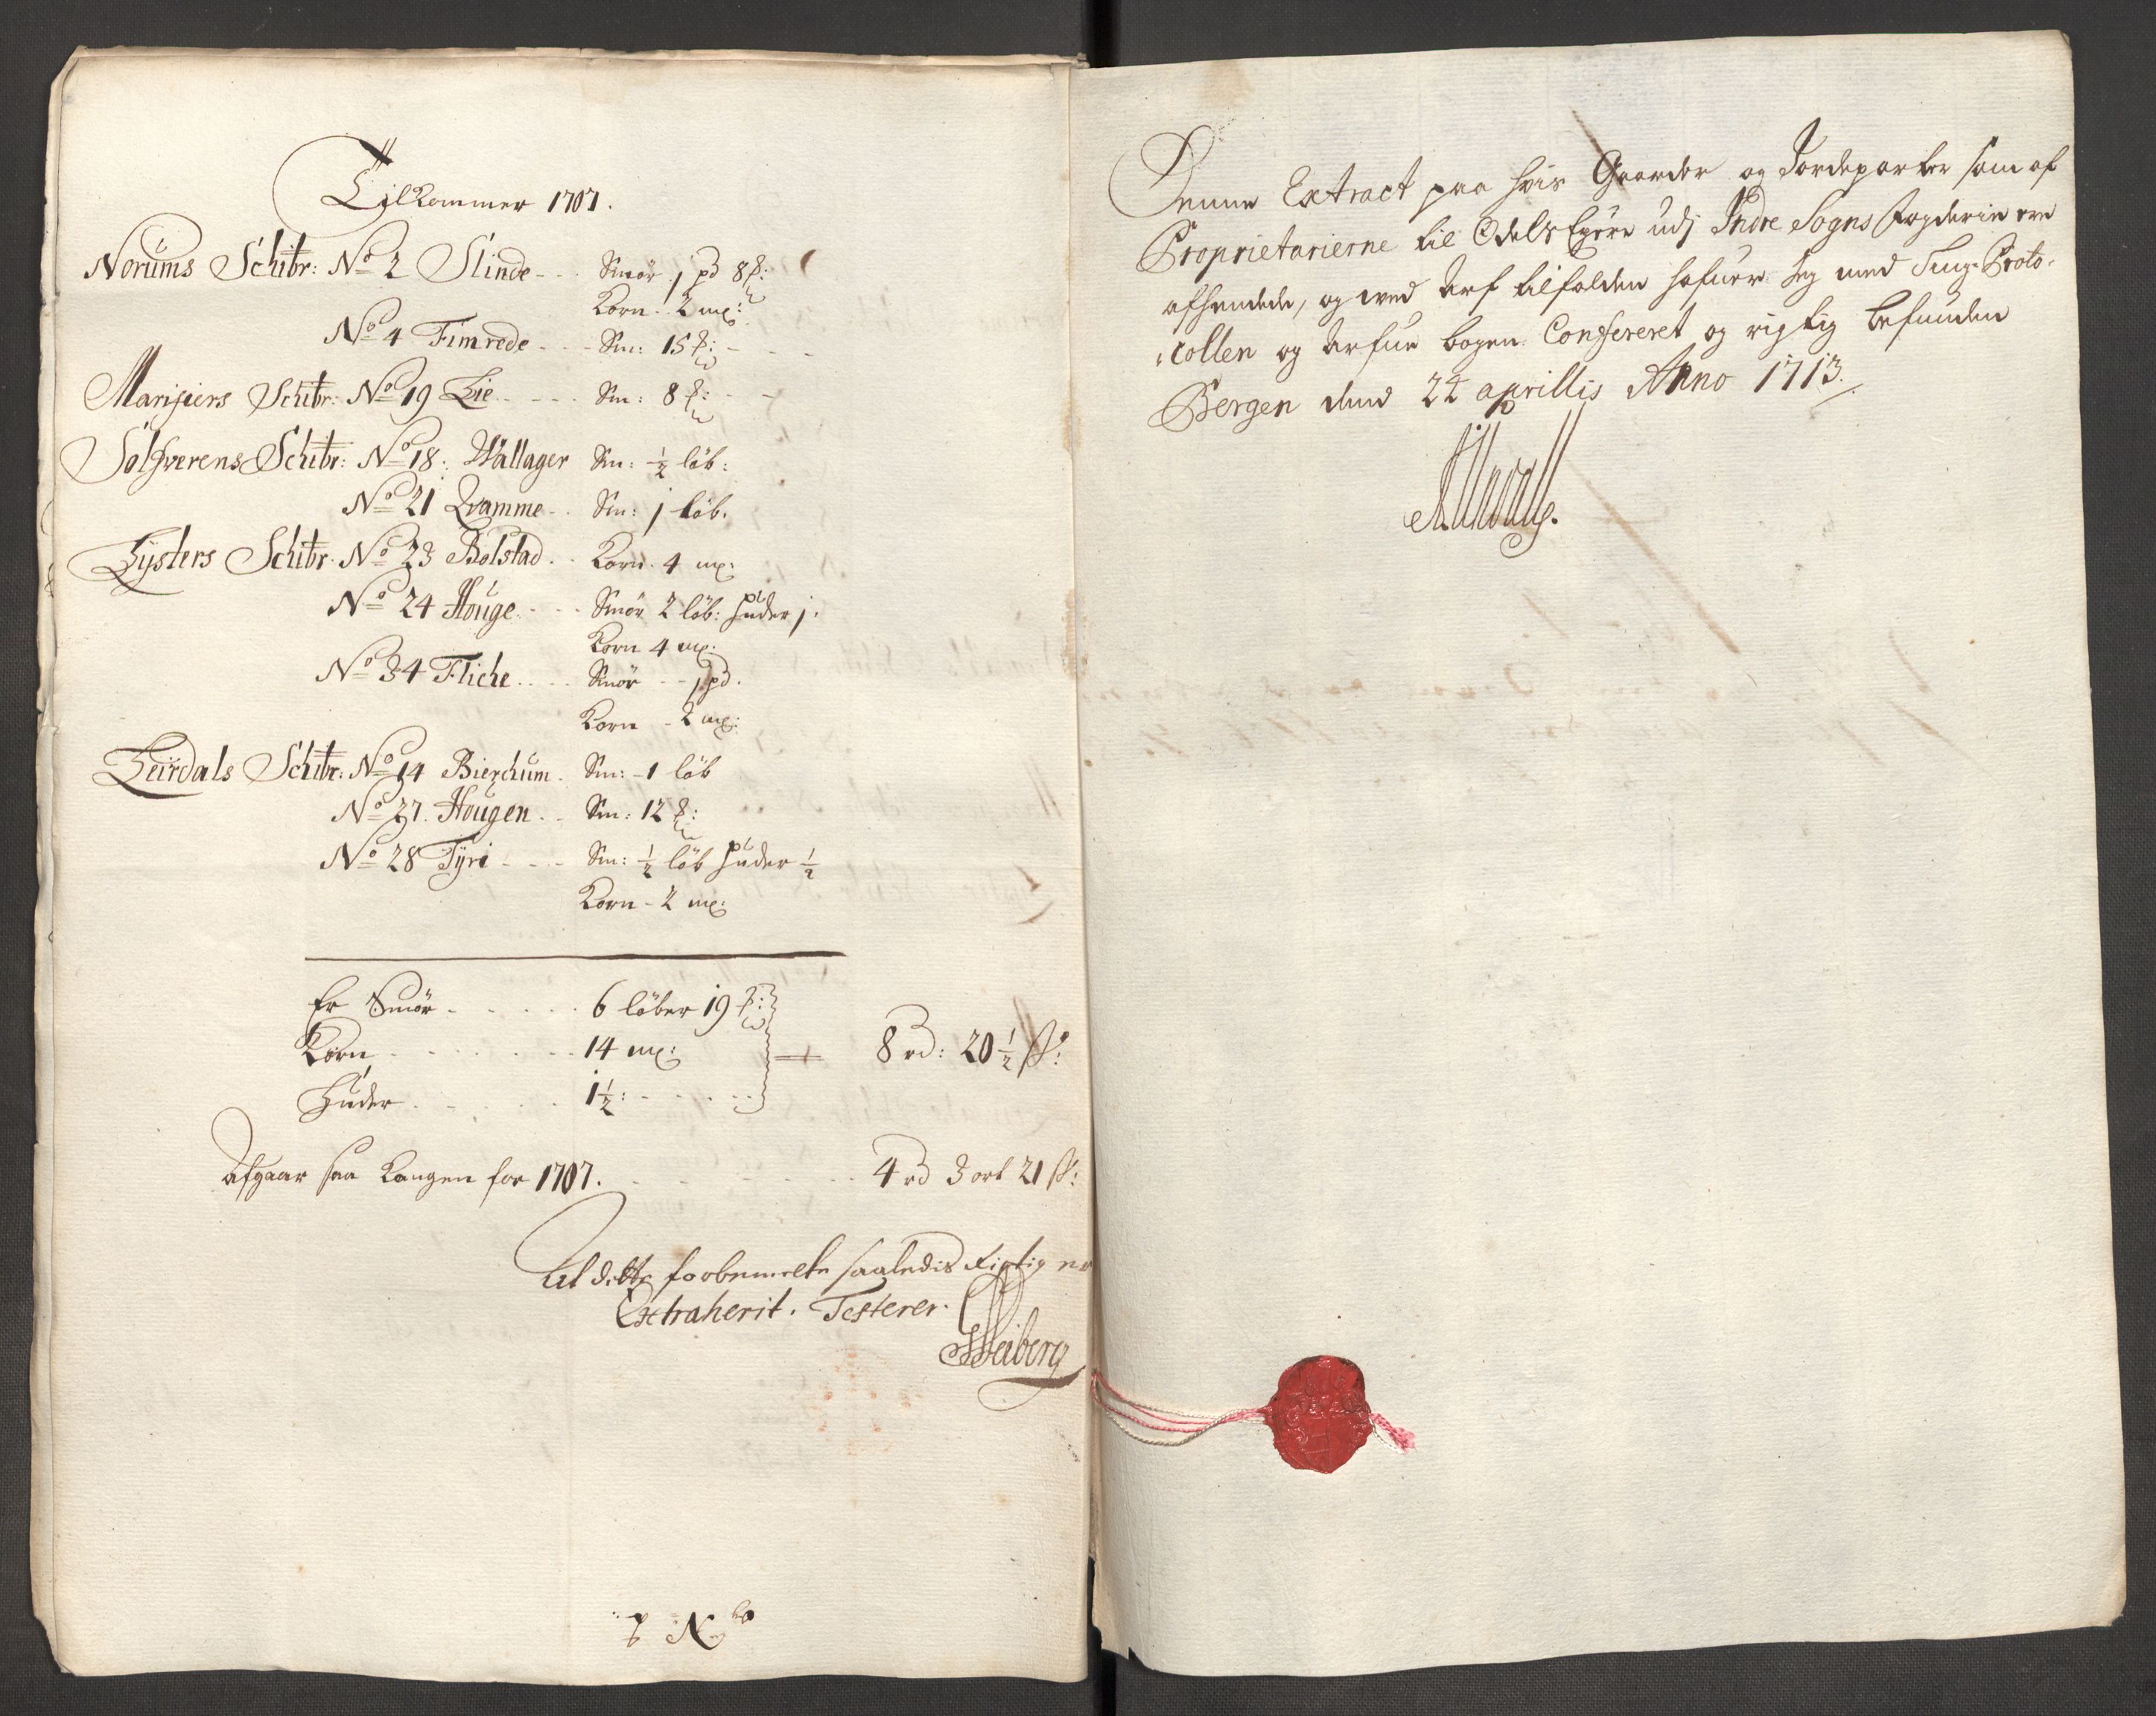 Tilkommer 1707.
Norums Schibr: No 2 Slinde - - - Smør 1 pd 8 ℔:
Korn - 2 mæ:
No 4 Fimrede - - - Sm: 15 ℔: - - -
Marifiers Schibr: No 19 Lie - - - - Sm: 8 ℔: - -
Solfverens Schibr: No 18: Wallager Sm: ½ løb:
No 21 Qvamme - - Sm: 1 løb.
Lysters Schibr: No 23 Bolstad - - Korn - 4 mæ:
No 24 Houge - - - Smør 2 løb: huder 1.
Korn 4 mæ:
No 34 Fliche - - - - Smør - - 1 pd.
Korn - 2 mæ:
Leirdals Schibr: No 14 Bierchum - Sm: - 1 løb
No 27. Hougen - - Sm: 12 ℔:
No 28 Tyri - - - - Sm: ½ løb huder ½
Korn - 2 mæ:
Er Smør - - - - - 6 løber 19 ℔:
Korn - - - - - - - 14 mæ: 8 rd: 20½ ß:
Huder - - - - - - 1½: - - - - -
Afgaar saa Langen for 1707. - - - - - - - - 4 rd 3 ort 21 ß:
At dette forbemelte saaledis Rigtig er
Extraherit. Testerer.
Heiberg
Denne Extract paa hvis Gaarder og Jordeparter som af
Proprietarierne til Odels Eyere udj Indre Sogns Fogderie ere
afhendede, og ved Arf tilfalden hafuer Jeg med Ting-Proto-
collen og Arfue bogen Confereret og rigtig befunden
Bergen dend 22 aprillis Anno 1713.